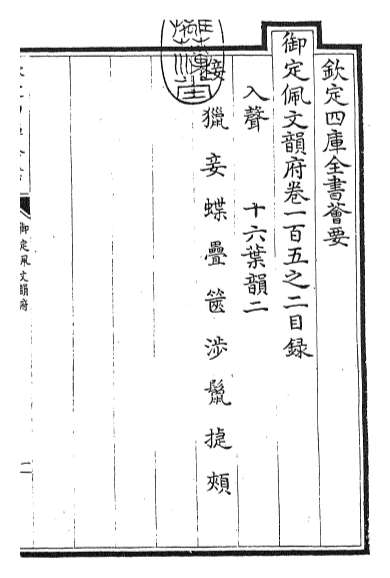 欽定四庫全書薈要
御定佩文韻府卷一百五之二目録
入聲　十六葉韻二
接　獵　妾　蝶　疊　篋　涉　鬛　捷　頰
御定佩文韻府